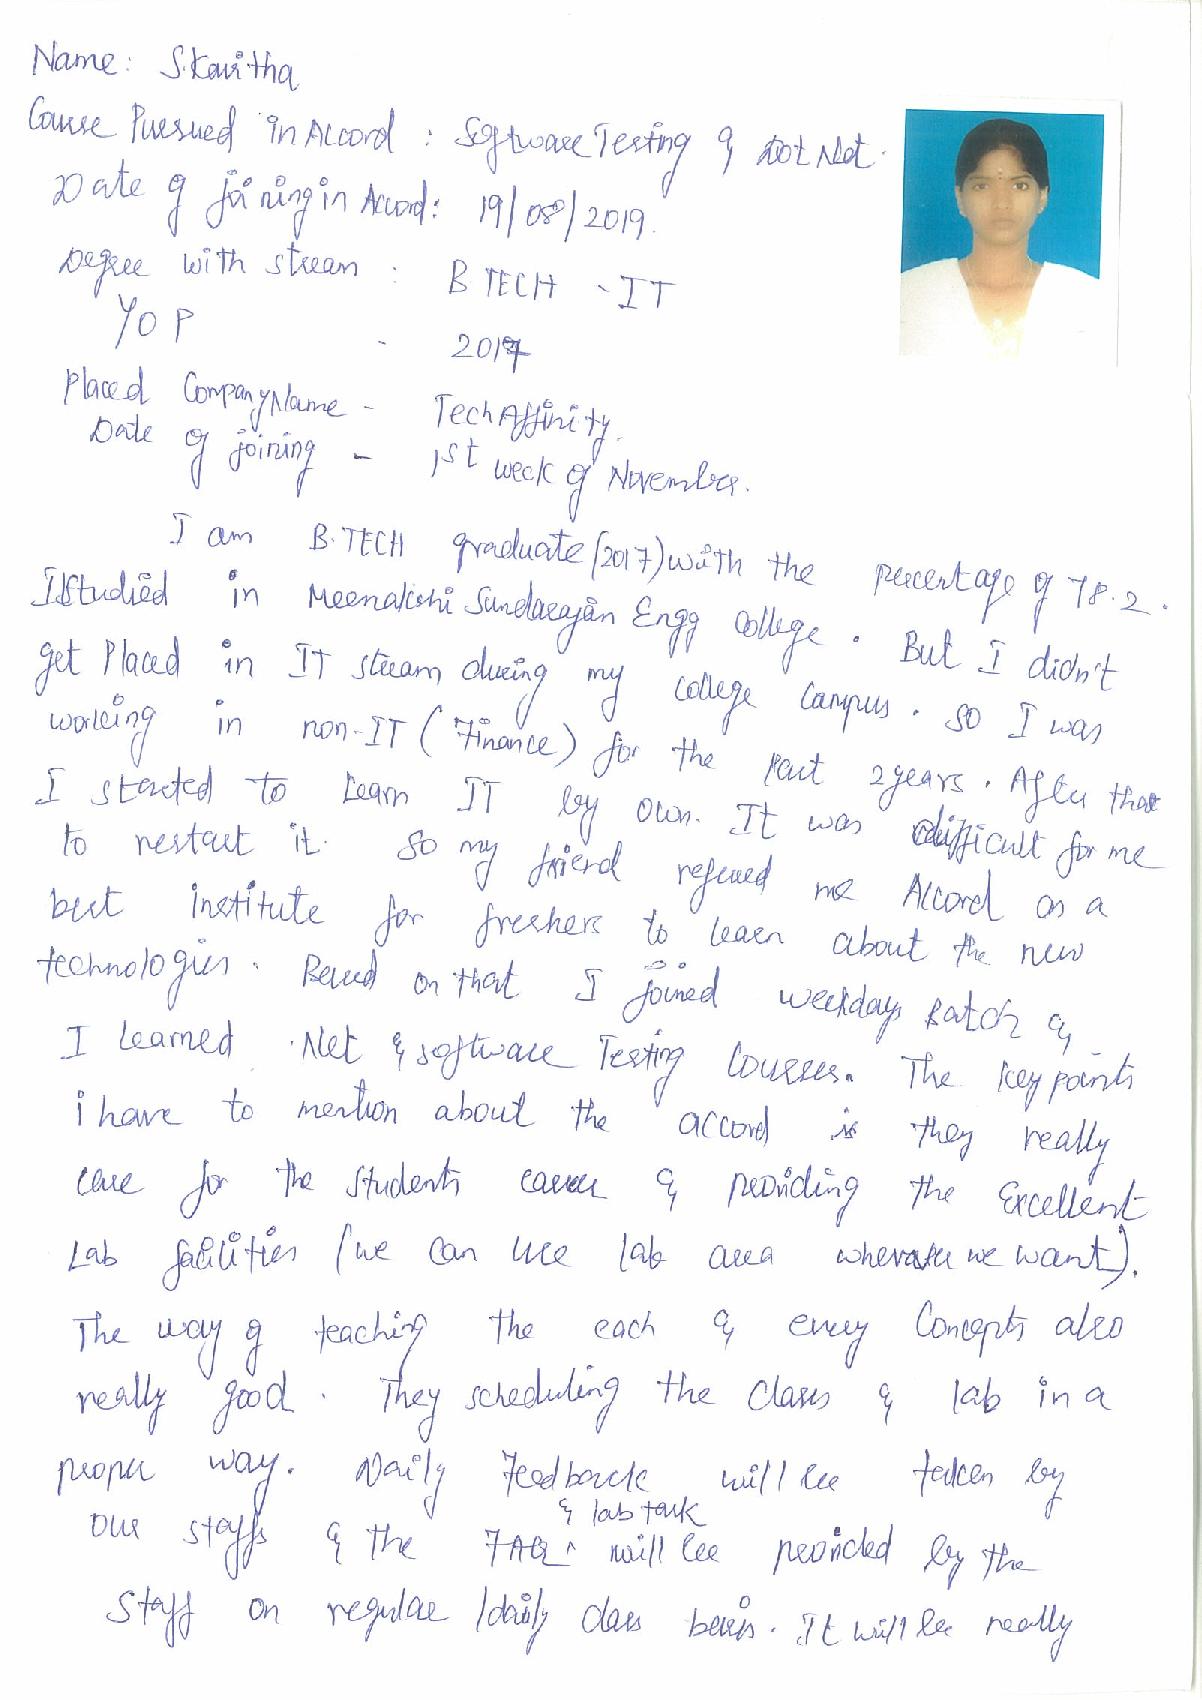 Name: S.Kavitha
Course Pursued in Accord : Software Testing & Dot Net.
Date of joining in Accord: 19/08/2019.
Degree with stream : B TECH - IT
YOP - 2017
Placed Company Name - TechAffinity.
Date of joining - 1st week of November.
I am B.TECH graduate (2017) with the percentage of 78.2.
I Studied in Meenakshi Sundarajan Engg College. But I didn't
get Placed in IT stream during my college campus. So I was
working in non-IT (Finance) for the past 2 years. After that
I started to learn IT by own. It was difficult for me
to restart it. So my friend refered me Accord as a
best institute for freshers to learn about the new
technologies. Based on that I joined weekdays Batch &
I learned .Net & software Testing Courses. The key points
i have to mention about the accord is they really
care for the students career & providing the Excellent
Lab facilities (we can use lab area whenever we want).
The way of teaching the each & every Concepts also
really good. They scheduling the class & lab in a
proper way. Daily Feedback will be taken by
our staffs & the FAQ & lab task will be provided by the
staff on regular/daily class basis. It will be really